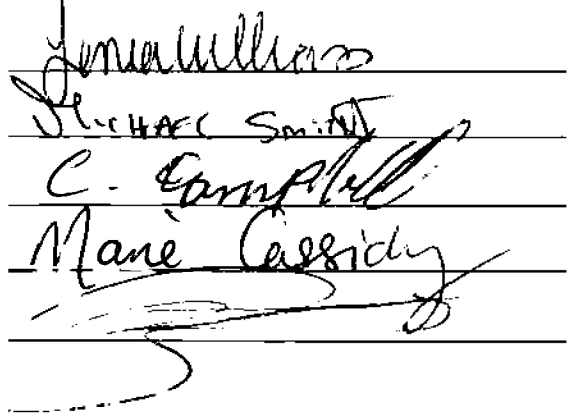 Sonia Williams
MICHAEL SMITH
C. Campbell
Marie Cassidy